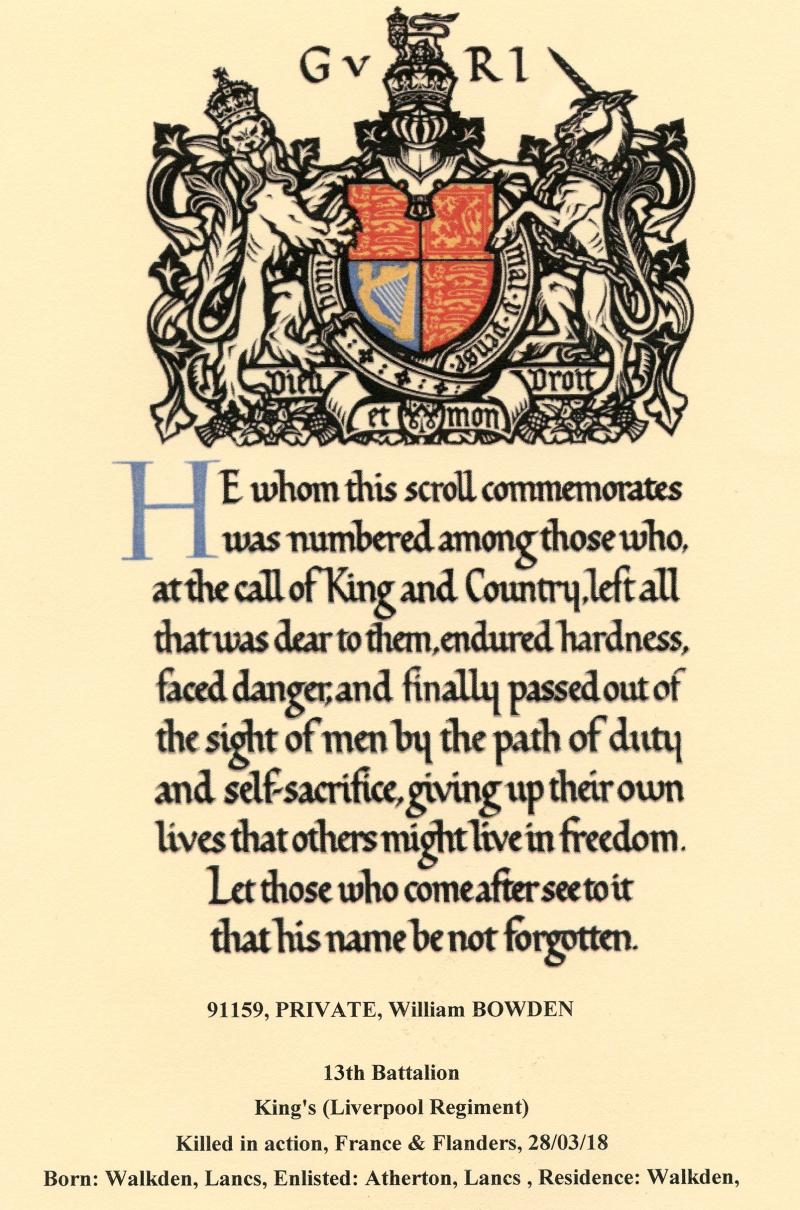 GV RI
honi
mal·y·pense
Dieu Droit
et mon
HE whom this scroll commemorates
was numbered among those who,
at the call of King and Country, left all
that was dear to them, endured hardness,
faced danger, and finally passed out of
the sight of men by the path of duty
and self-sacrifice, giving up their own
lives that others might live in freedom.
Let those who come after see to it
that his name be not forgotten.
91159, PRIVATE, William BOWDEN
13th Battalion
King's (Liverpool Regiment)
Killed in action, France & Flanders, 28/03/18
Born: Walkden, Lancs, Enlisted: Atherton, Lancs , Residence: Walkden,